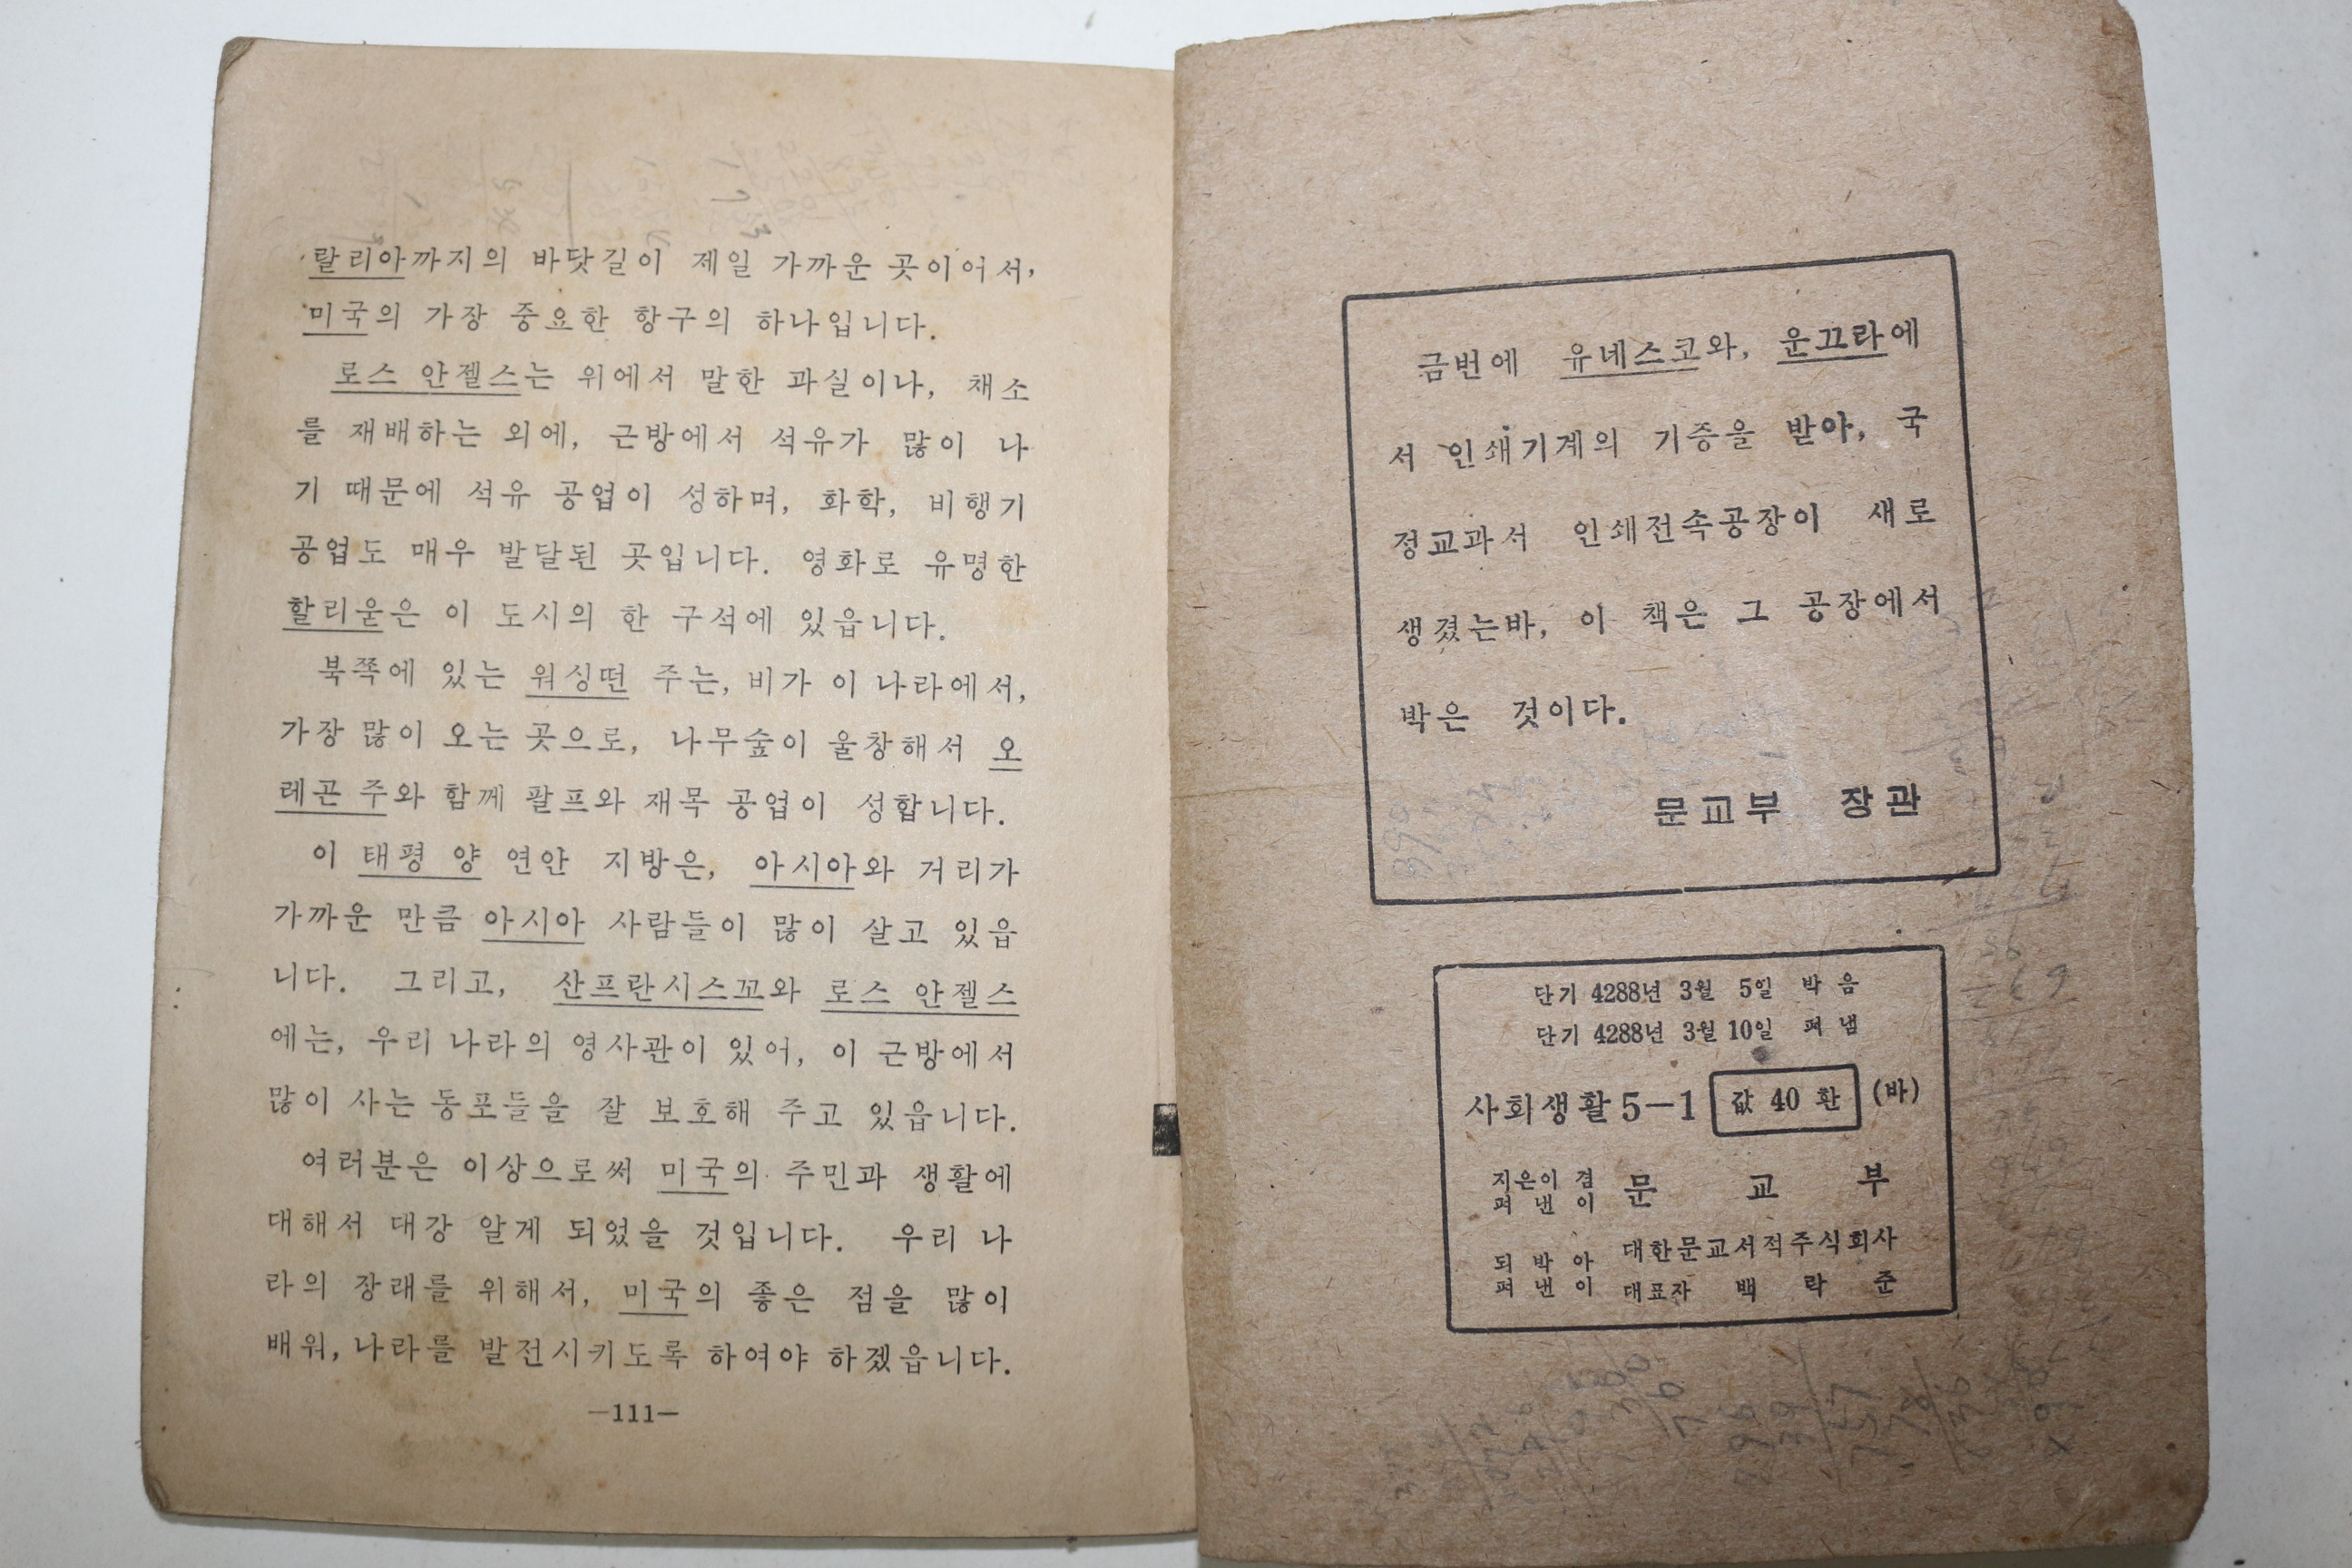 랄리아까지의 바닷길이 제일 가까운 곳이어서,
미국의 가장 중요한 항구의 하나입니다.
로스 안젤스는 위에서 말한 과실이나, 채소
를 재배하는 외에, 근방에서 석유가 많이 나
기 때문에 석유 공업이 성하며, 화학, 비행기
공업도 매우 발달된 곳입니다. 영화로 유명한
할리욷은 이 도시의 한 구석에 있읍니다.
북쪽에 있는 워싱떤 주는, 비가 이 나라에서,
가장 많이 오는 곳으로, 나무숲이 울창해서 오
레곤 주와 함께 팔프와 재목 공업이 성합니다.
이 태평 양 연안 지방은, 아시아와 거리가
가까운 만큼 아시아 사람들이 많이 살고 있읍
니다. 그리고, 산프란시스꼬와 로스 안젤스
에는, 우리 나라의 영사관이 있어, 이 근방에서
많이 사는 동포들을 잘 보호해 주고 있읍니다.
여러분은 이상으로써 미국의 주민과 생활에
대해서 대강 알게 되었을 것입니다. 우리 나
라의 장래를 위해서, 미국의 좋은 점을 많이
배워, 나라를 발전시키도록 하여야 하겠읍니다.
—111—
금번에 유네스코와, 운끄라에
서 인쇄기계의 기증을 받아, 국
정교과서 인쇄전속공장이 새로
생겼는바, 이 책은 그 공장에서
박은 것이다.
문교부 장관
단기 4288년 3월 5일 박음
단기 4288년 3월 10일 펴냄
사회생활 5—1 값 40 환 (바)
지은이 겸
펴낸이 문교부
되박아
펴낸이 대한문교서적주식회사
대표자 백락준